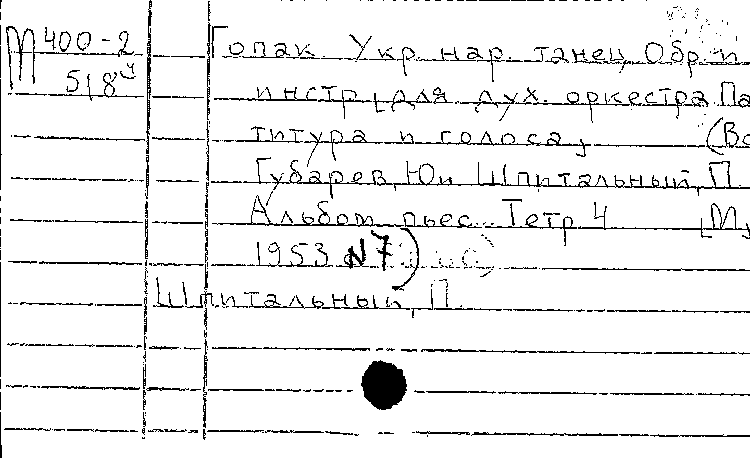 М 400-2
518ч
Гопак Укр нар. танец, Обр. и
инстр. для дух. оркестра Па
титура и голоса, (Вс
Губарев, Юи Шпитальный, П.
Альбом пьес. Тетр 4 [М,
1953 N7)
Шпитальный, П.